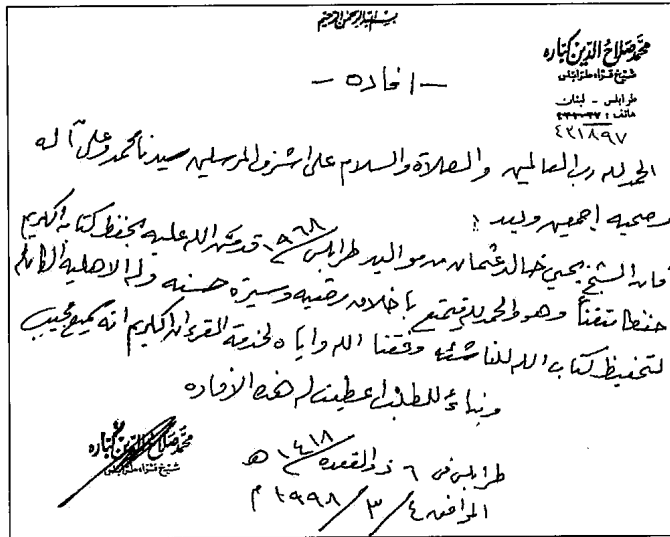 بسم الله الرحمن الرحيم
محمد صلاح الدين كبارة
شيخ قراء طرابلس
طرابلس - لبنان
هاتف :
٤٣١٨٩٧
- افاده -
الحمد لله رب العالمين والصلاة والسلام على اشرف المرسلين سيدنا محمد وعلى آله
وصحبه اجمعين وبعد :
فان الشيخ يحيى خالد عثمان من مواليد طرابلس /١٩٦٨ قد منّ الله عليه بحفظ كتابه الكريم
حفظا متقناً وهو والحمد لله يتمتع باخلاق رضية وسيرة حسنه وله الاهلية الكاملة
لتحفيظ كتاب الله للناشئه وفقنا الله واياه لخدمة القرءان الكريم انه سميع مجيب
وبناءً للطلب اعطيت له هذه الافاده
محمد صلاح الدين كبارة
شيخ قراء طرابلس
طرابلس في ٦ ذو القعده /١٤١٨ هـ
الموافق ٤/٣/١٩٩٨ م